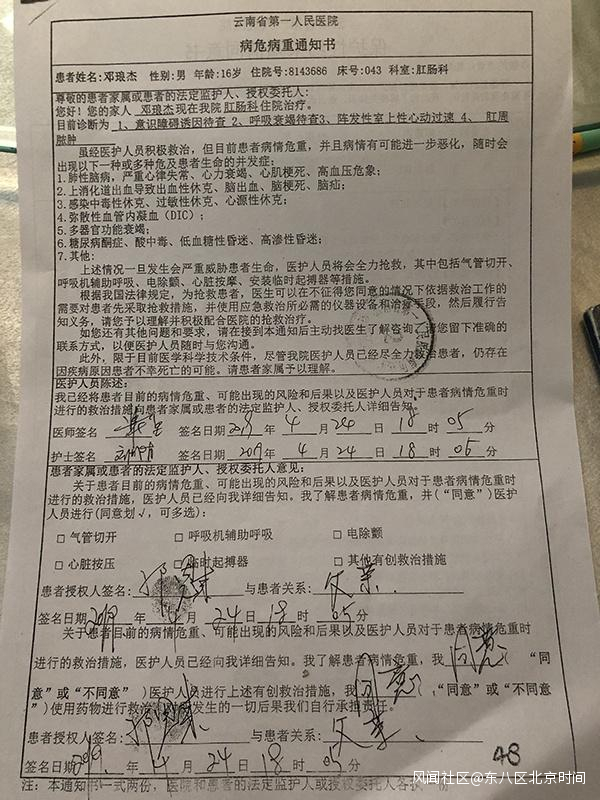 云南省第一人民医院
病危病重通知书
患者姓名:邓琅杰 性别:男 年龄:16岁 住院号:8143686 床号:043 科室:肛肠科
尊敬的患者家属或患者的法定监护人、授权委托人:
您好! 您的家人 邓琅杰 现在我院 肛肠科 住院治疗。
目前诊断为 1、意识障碍诱因待查 2、呼吸衰竭待查3、阵发性室上性心动过速 4、 肛周
脓肿
虽经医护人员积极救治,但目前患者病情危重,并且病情有可能进一步恶化,随时会
出现以下一种或多种危及患者生命的并发症:
1.肺性脑病,严重心律失常、心力衰竭、心肌梗死、高血压危象;
2.上消化道出血导致出血性休克、脑出血、脑梗死、脑疝;
3.感染中毒性休克、过敏性休克、心源性休克;
4.弥散性血管内凝血(DIC);
5.多器官功能衰竭;
6.糖尿病酮症、酸中毒、低血糖性昏迷、高渗性昏迷;
7.其他:
上述情况一旦发生会严重威胁患者生命,医护人员将会全力抢救,其中包括气管切开、
呼吸机辅助呼吸、电除颤、心脏按摩、安装临时起搏器等措施。
根据我国法律规定,为抢救患者,医生可以在不征得您同意的情况下依据救治工作的
需要对患者先采取抢救措施,并使用应急救治所必需的仪器设备和治疗手段,然后履行告
知义务,请您予以理解并积极配合医院的抢救治疗。
如您还有其他问题和要求,请在接到本通知后主动找医生了解咨询,请您留下准确的
联系方式,以便医护人员随时与您沟通。
此外,限于目前医学科学技术条件,尽管我院医护人员已经尽全力救治患者,仍存在
因疾病原因患者不幸死亡的可能。请患者家属予以理解。
医护人员陈述:
我已经将患者目前的病情危重、可能出现的风险和后果以及医护人员对于患者病情危重时
进行的救治措施向患者家属或患者的法定监护人、授权委托人详细告知。
医师签名 签名日期 2019 年 4 月 24 日 18 时 05 分
护士签名 签名日期 2019 年 4 月 24 日 18 时 05 分
患者家属或患者的法定监护人、授权委托人意见:
关于患者目前的病情危重、可能出现的风险和后果以及医护人员对于患者病情危重时
进行的救治措施,医护人员已经向我详细告知。我了解患者病情危重,并(“同意”)医护
人员进行(同意划√,可多选):
□ 气管切开 □ 呼吸机辅助呼吸 □ 电除颤
□ 心脏按压 □ 临时起搏器 □ 其他有创救治措施
患者授权人签名: 与患者关系: 父亲
签名日期 2019 年 4 月 24 日 18 时 05 分
关于患者目前的病情危重、可能出现的风险和后果以及医护人员对于患者病情危重时
进行的救治措施,医护人员已经向我详细告知。我了解患者病情危重,我 同意 ( “同
意”或“不同意” )医护人员进行上述有创救治措施,我 同意 ,(“同意”或“不同意
”)使用药物进行救治 发生的一切后果我们自行承担责任。
患者授权人签名: 与患者关系: 父亲
签名日期 2019. 年 4 月 24 日 18 时 05 分
48
注: 本通知书一式两份,医院和患者的法定监护人或授权委托人各 份
风闻社区@东八区北京时间